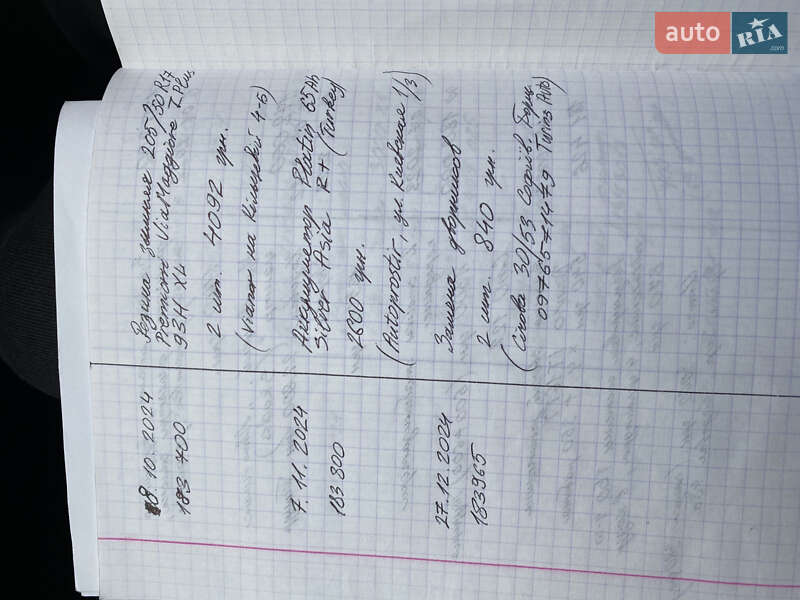 auto RIA.com
8.10.2024
183 700
Резина зимняя 205/50 R17
Premiorri ViaMaggiore Z Plus
93H XL
2 шт. 4092 грн.
(Vianor на Кільцевій 4-б)
7.11.2024
183.800
Аккумулятор Platin 65Ah
Silver Asia R+ (Turkey)
2600 грн.
(Autoprostir, ул. Киевская 1/3)
27.12.2024
183965
Замена дворников
2 шт. 840 грн.
(Січова 30/53 Софіїв. Борщ.
0976571479 Twins Auto)